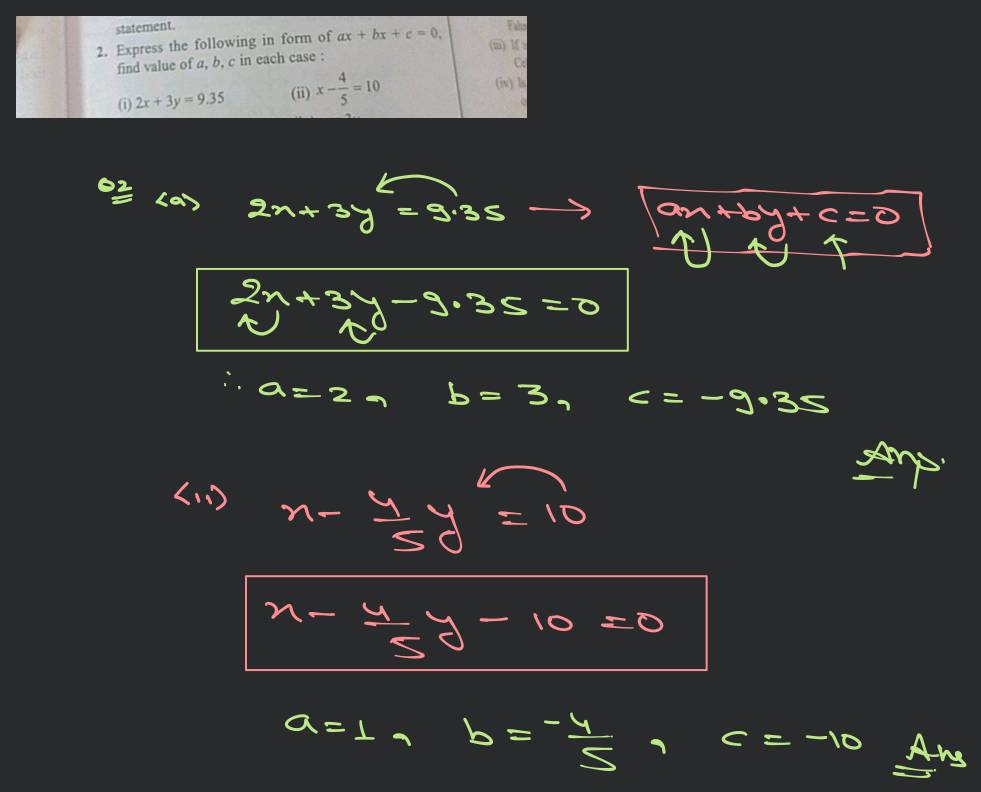 statement.
2. Express the following in form of ax + bx + c = 0,
find value of a, b, c in each case :
(i) 2x + 3y = 9.35 (ii) x - 4/5 = 10
(iii) If
(iv) Is
Q2 (a) 2x + 3y = 9.35 → ax + by + c = 0
2x + 3y - 9.35 = 0
∴ a = 2, b = 3, c = -9.35
Ans.
(ii) x - 4/5 y = 10
x - 4/5 y - 10 = 0
a = 1, b = -4/5, c = -10 Ans